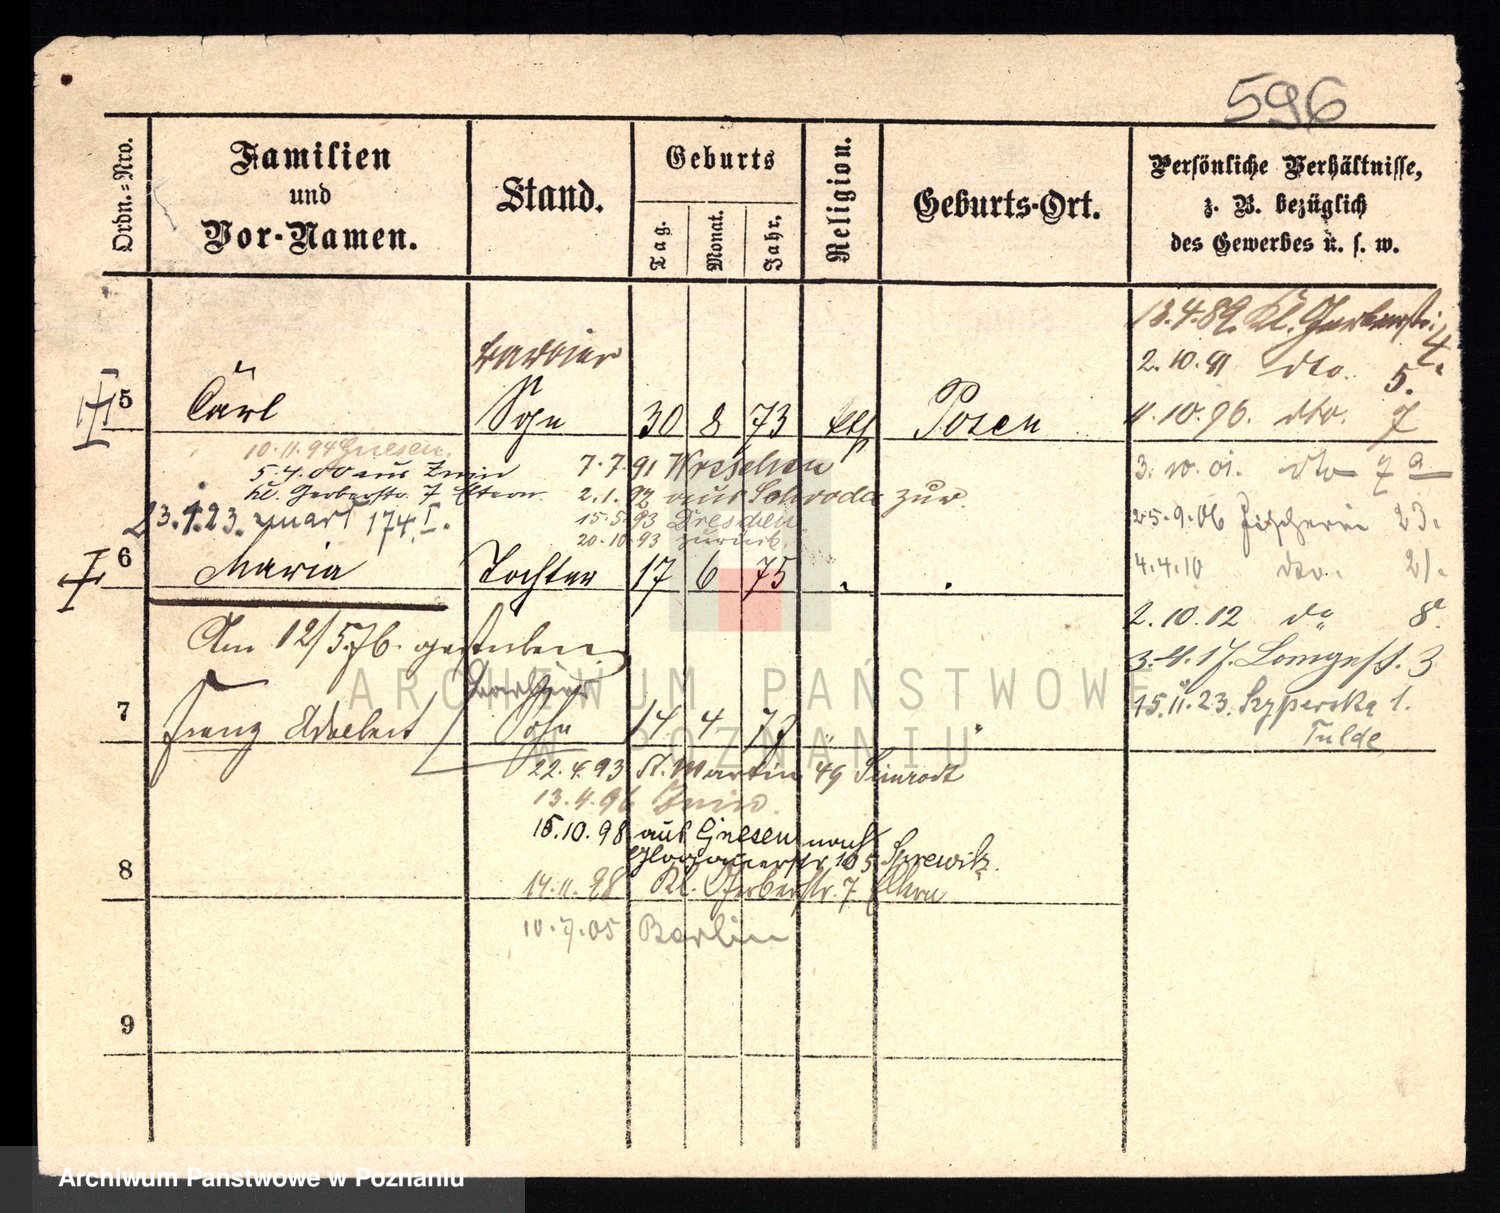 596
Ordn.=Nro.
Familien
und
Vor-Namen.
Stand.
Geburts
Tag.
Monat.
Jahr.
Religion.
Geburts-Ort.
Persönliche Verhältnisse,
z. B. bezüglich
des Gewerbes u. s. w.
13.4.89. Kl. Gerberstr.
4.
2.10.91 dto. 5.
4.10.96. dto. 7
3.10.01. dto 7a
25.9.06 Fischerei 23.
4.4.10 dto. 21.
2.10.12 do 8a.
3.4.17. Longest. 3
15.11.23. Szyperska 1.
Tulde
Barbier
5 Carl Sohn 30 8 73 kth Posen
10.11.94 Gnesen.
5.4.00 aus Znin
kl. Gerberstr. 7 Eltern
23.1.23. 174 I.
7.7.91 Wreschen
2.1.92 aus Schroda zur.
15.5.93 Dresden
20.10.93 zurück.
6 Maria Tochter 17 6 75 " "
Am 12/5.76. gestorben
7 Franz Adalbert Sohn 14 4 77 " "
22.4.93 St. Martin 49
13.4.96 Znin
15.10.98 aus Gnesen nach
Glogauerstr. 105
14.11.98 Kl. Gerberstr. 7 Eltern
10.7.05 Berlin
8
9
ARCHIWUM PAŃSTWOWE
W POZNANIU
Archiwum Państwowe w Poznaniu